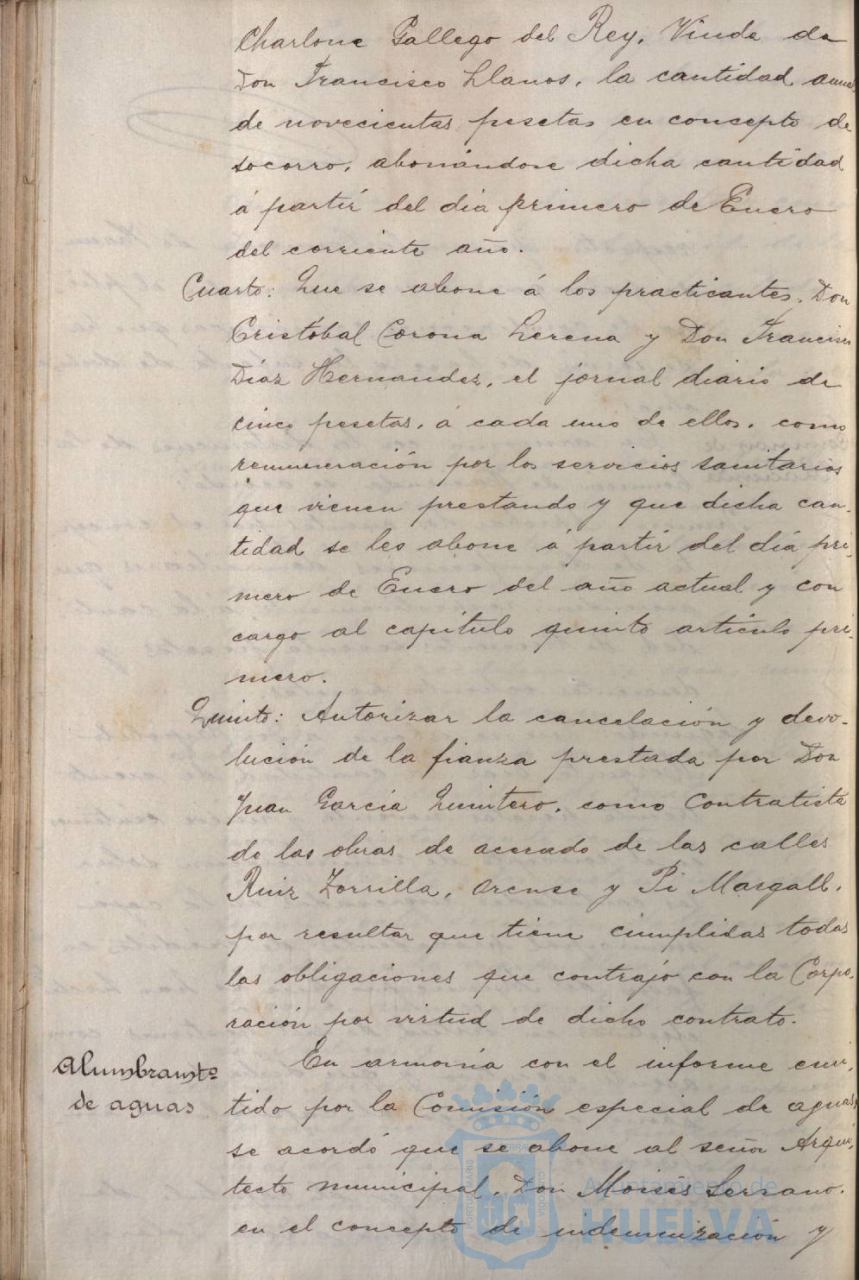 Charlone Gallego del Rey, Viuda de
Don Francisco Llanos, la cantidad anual
de novecientas pesetas en concepto de
socorro, abonándose dicha cantidad
á partir del día primero de Enero
del corriente año.
Cuarto: Que se abone á los practicantes, Don
Cristóbal Corona Lerena y Don Francisco
Díaz Hernandez, el jornal diario de
cinco pesetas, á cada uno de ellos, como
remuneración por los servicios sanitarios
que vienen prestando y que dicha can-
tidad se les abone á partir del día pri-
mero de Enero del año actual y con
cargo al capítulo quinto artículo pri-
mero.
Quinto: Autorizar la cancelación y devo-
lución de la fianza prestada por Don
Juan García Quintero, como Contratista
de las obras de acerado de las calles
Ruiz Zorrilla, Orense y Pi Margall,
por resultar que tiene cumplidas todas
las obligaciones que contrajo con la Corpo-
ración por virtud de dicho contrato.
Alumbramtº
de aguas
En armonía con el informe emi-
tido por la Comisión especial de aguas,
se acordó que se abone al señor Arqui-
tecto municipal, Don Moisés Serrano,
en el concepto de indemnización y
Ayuntamiento de
HUELVA